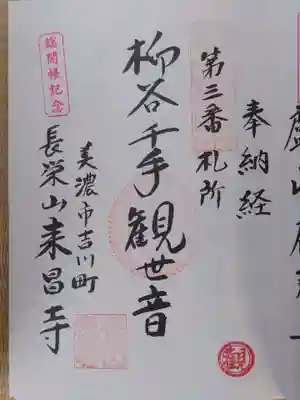 奉納経
第三番札所
柳谷千手観世音
美濃市吉川町
長栄山来昌寺
総開帳記念